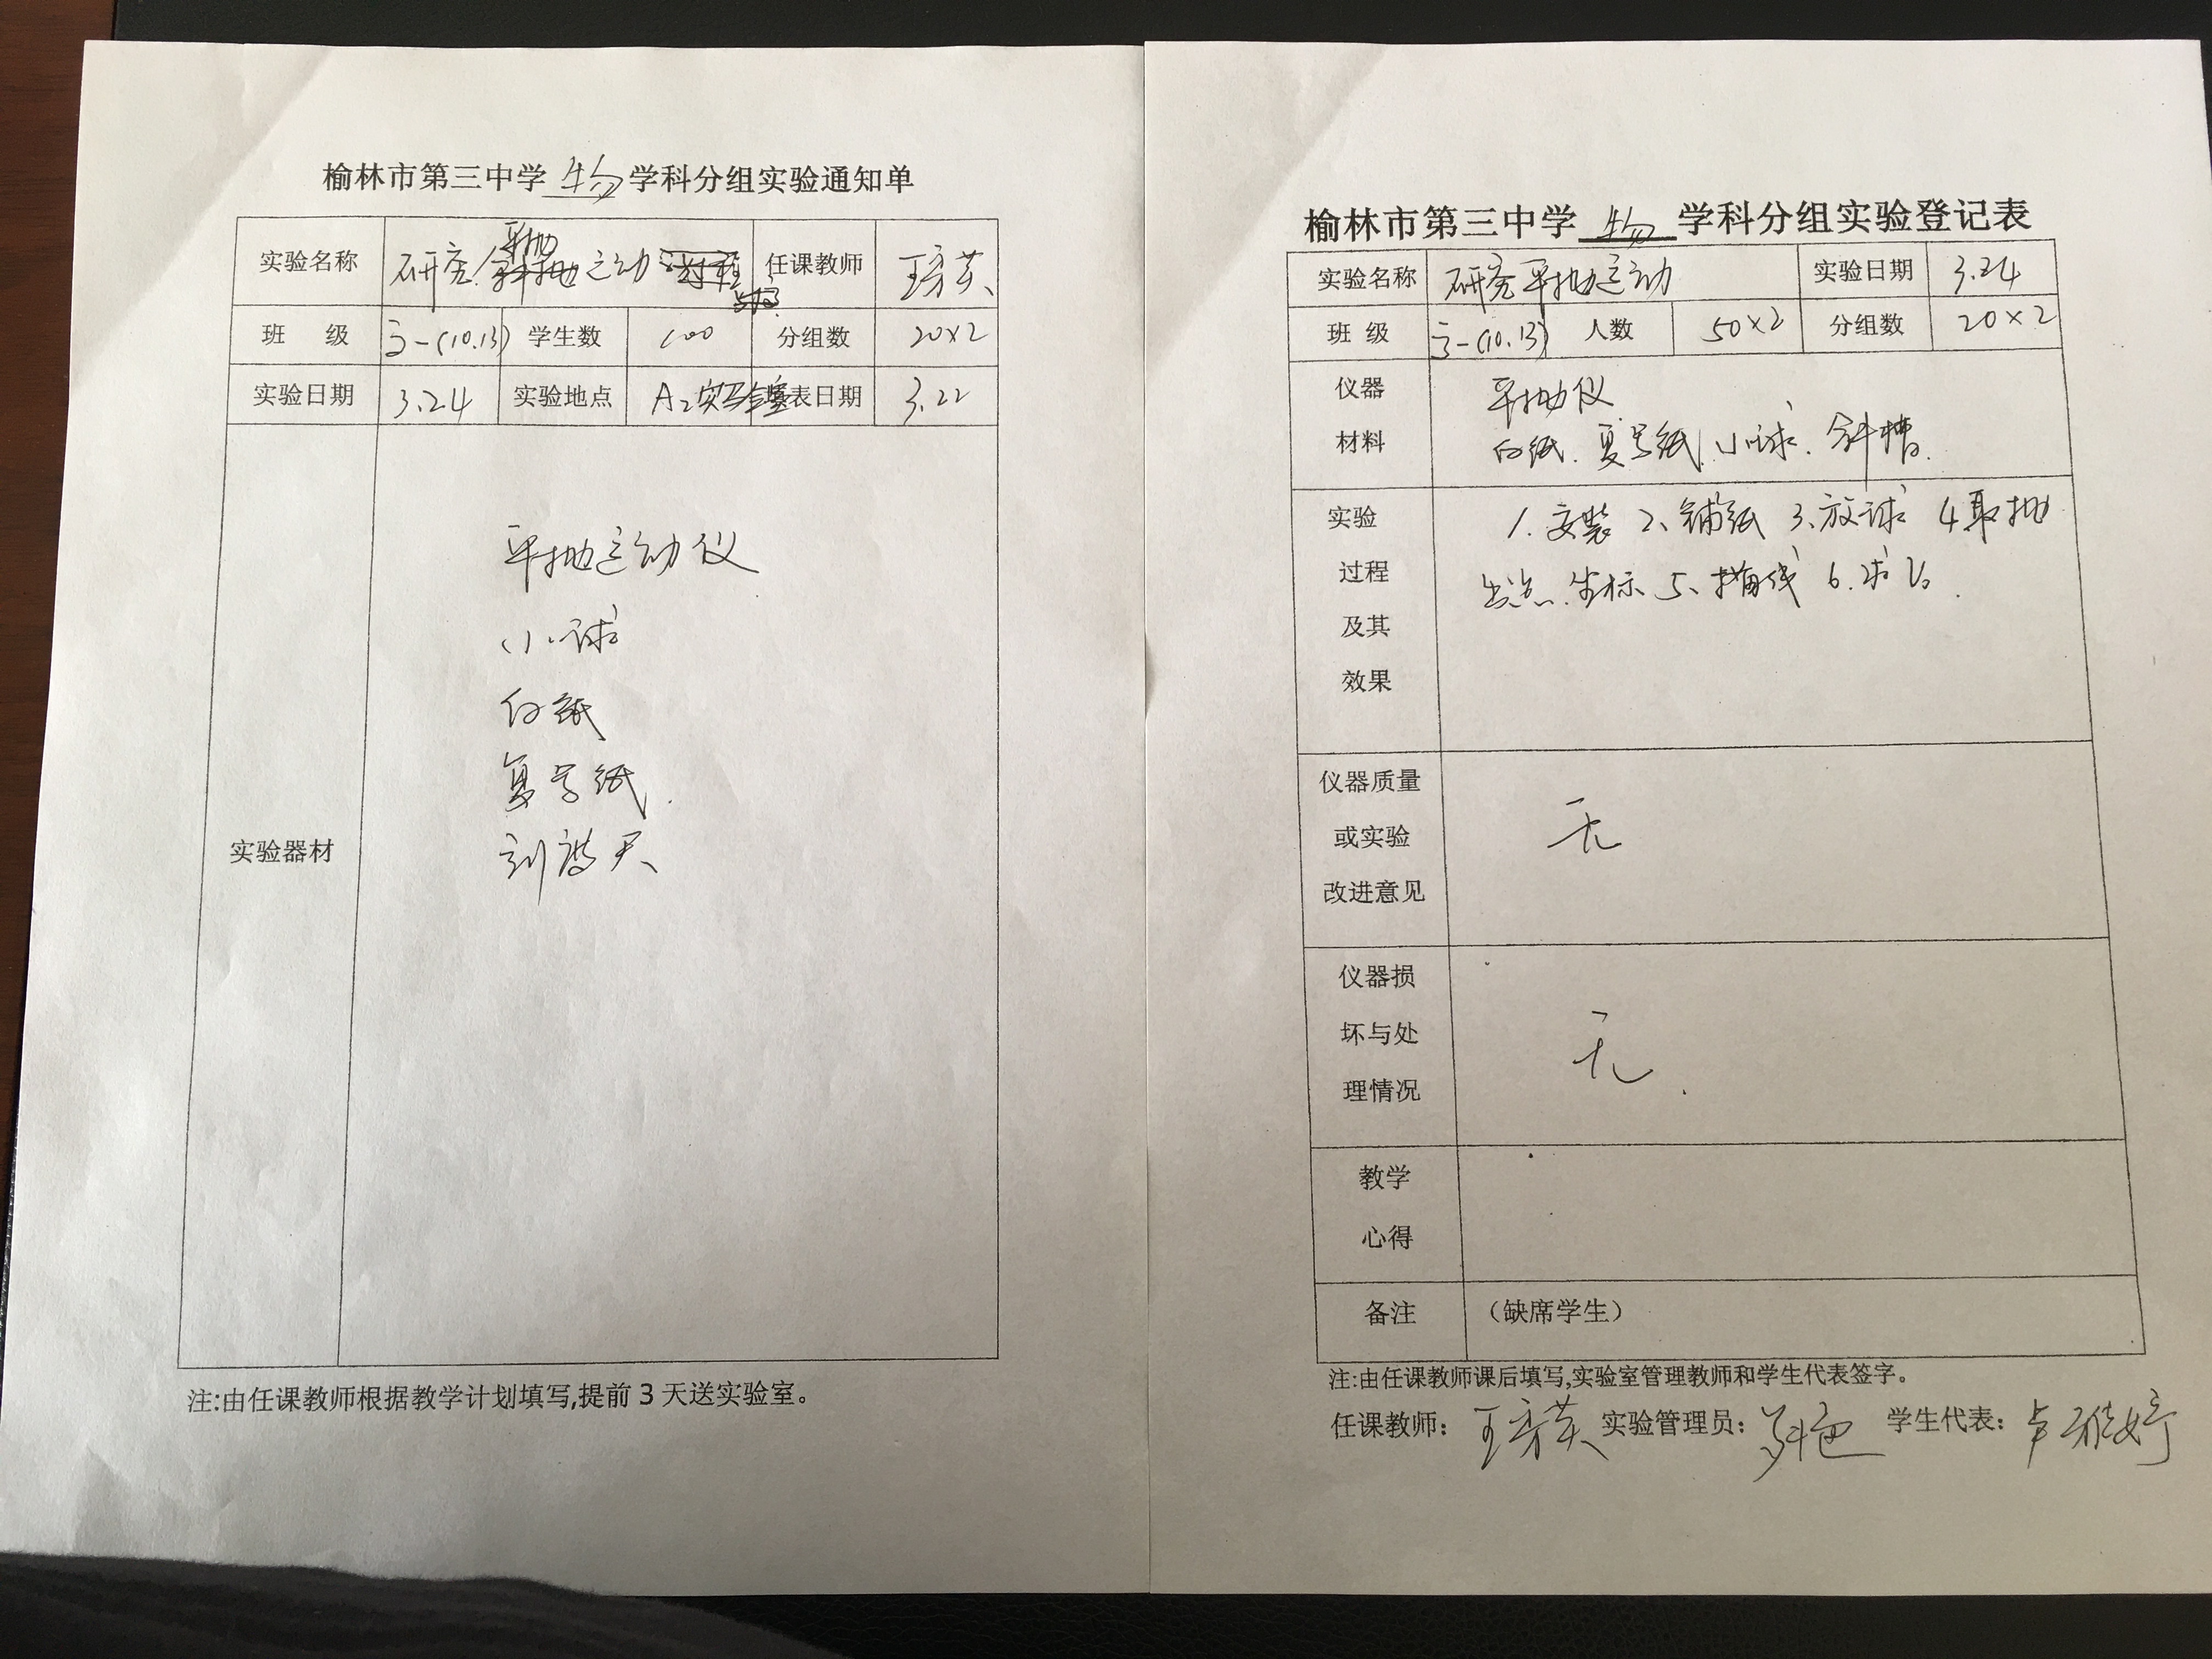 榆林市第三中学 生物 学科分组实验通知单
实验名称 研究平抛运动 任课教师 王芳英
班 级 高一(10.13) 学生数 100 分组数 20×2
实验日期 3.24 实验地点 A2实验室 填表日期 3.22
实验器材
平抛运动仪
小球
白纸
复写纸
刻度尺
注:由任课教师根据教学计划填写,提前 3 天送实验室。
榆林市第三中学 生物 学科分组实验登记表
实验名称 研究平抛运动 实验日期 3.24
班 级 高一(10.13) 人数 50×2 分组数 20×2
仪器
材料
平抛仪
白纸、复写纸、小球、斜槽.
实验
过程
及其
效果
1. 安装 2、铺纸 3、放球 4取抛
出点、坐标、5、描曲线 6.求V₀.
仪器质量
或实验
改进意见
无
仪器损
坏与处
理情况
无.
教学
心得
备注 （缺席学生）
注:由任课教师课后填写,实验室管理教师和学生代表签字。
任课教师: 王芳英 实验管理员: 学生代表: 卢雅婷